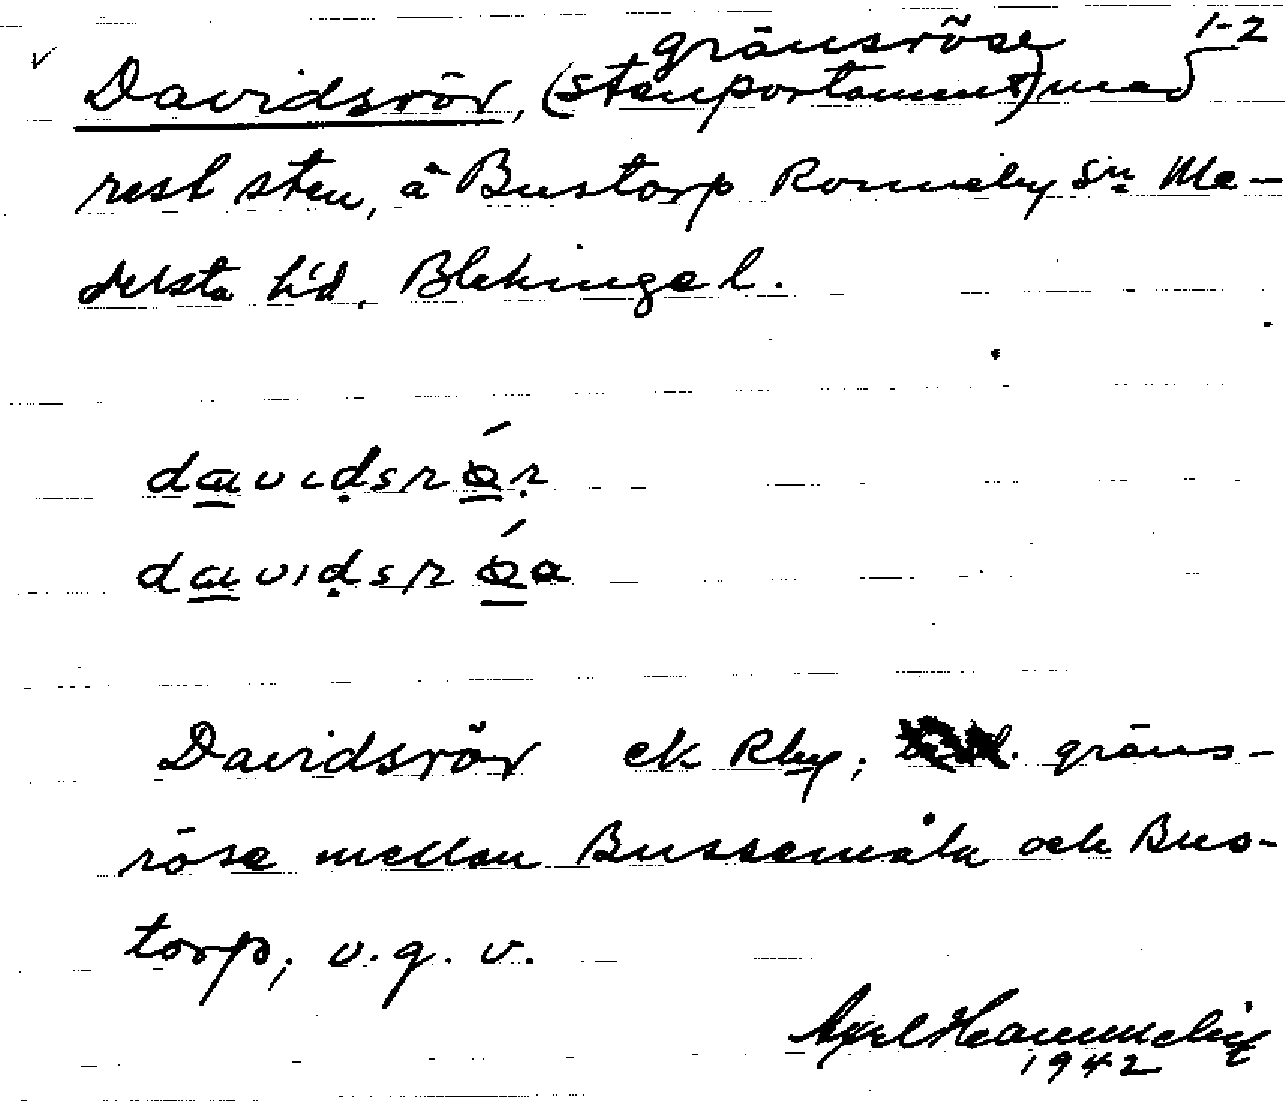 gränsröse 1-2
Davidsrör, (stenportament) med
rest sten, å Bustorp Ronneby sn Me-
delsta hd, Blekinge l.
davidsrør
davidsrøa
Davidsrör ek Rby; gräns-
röse mellan Bussemåla och Bus-
torp, v. g. v.
Axel
1942